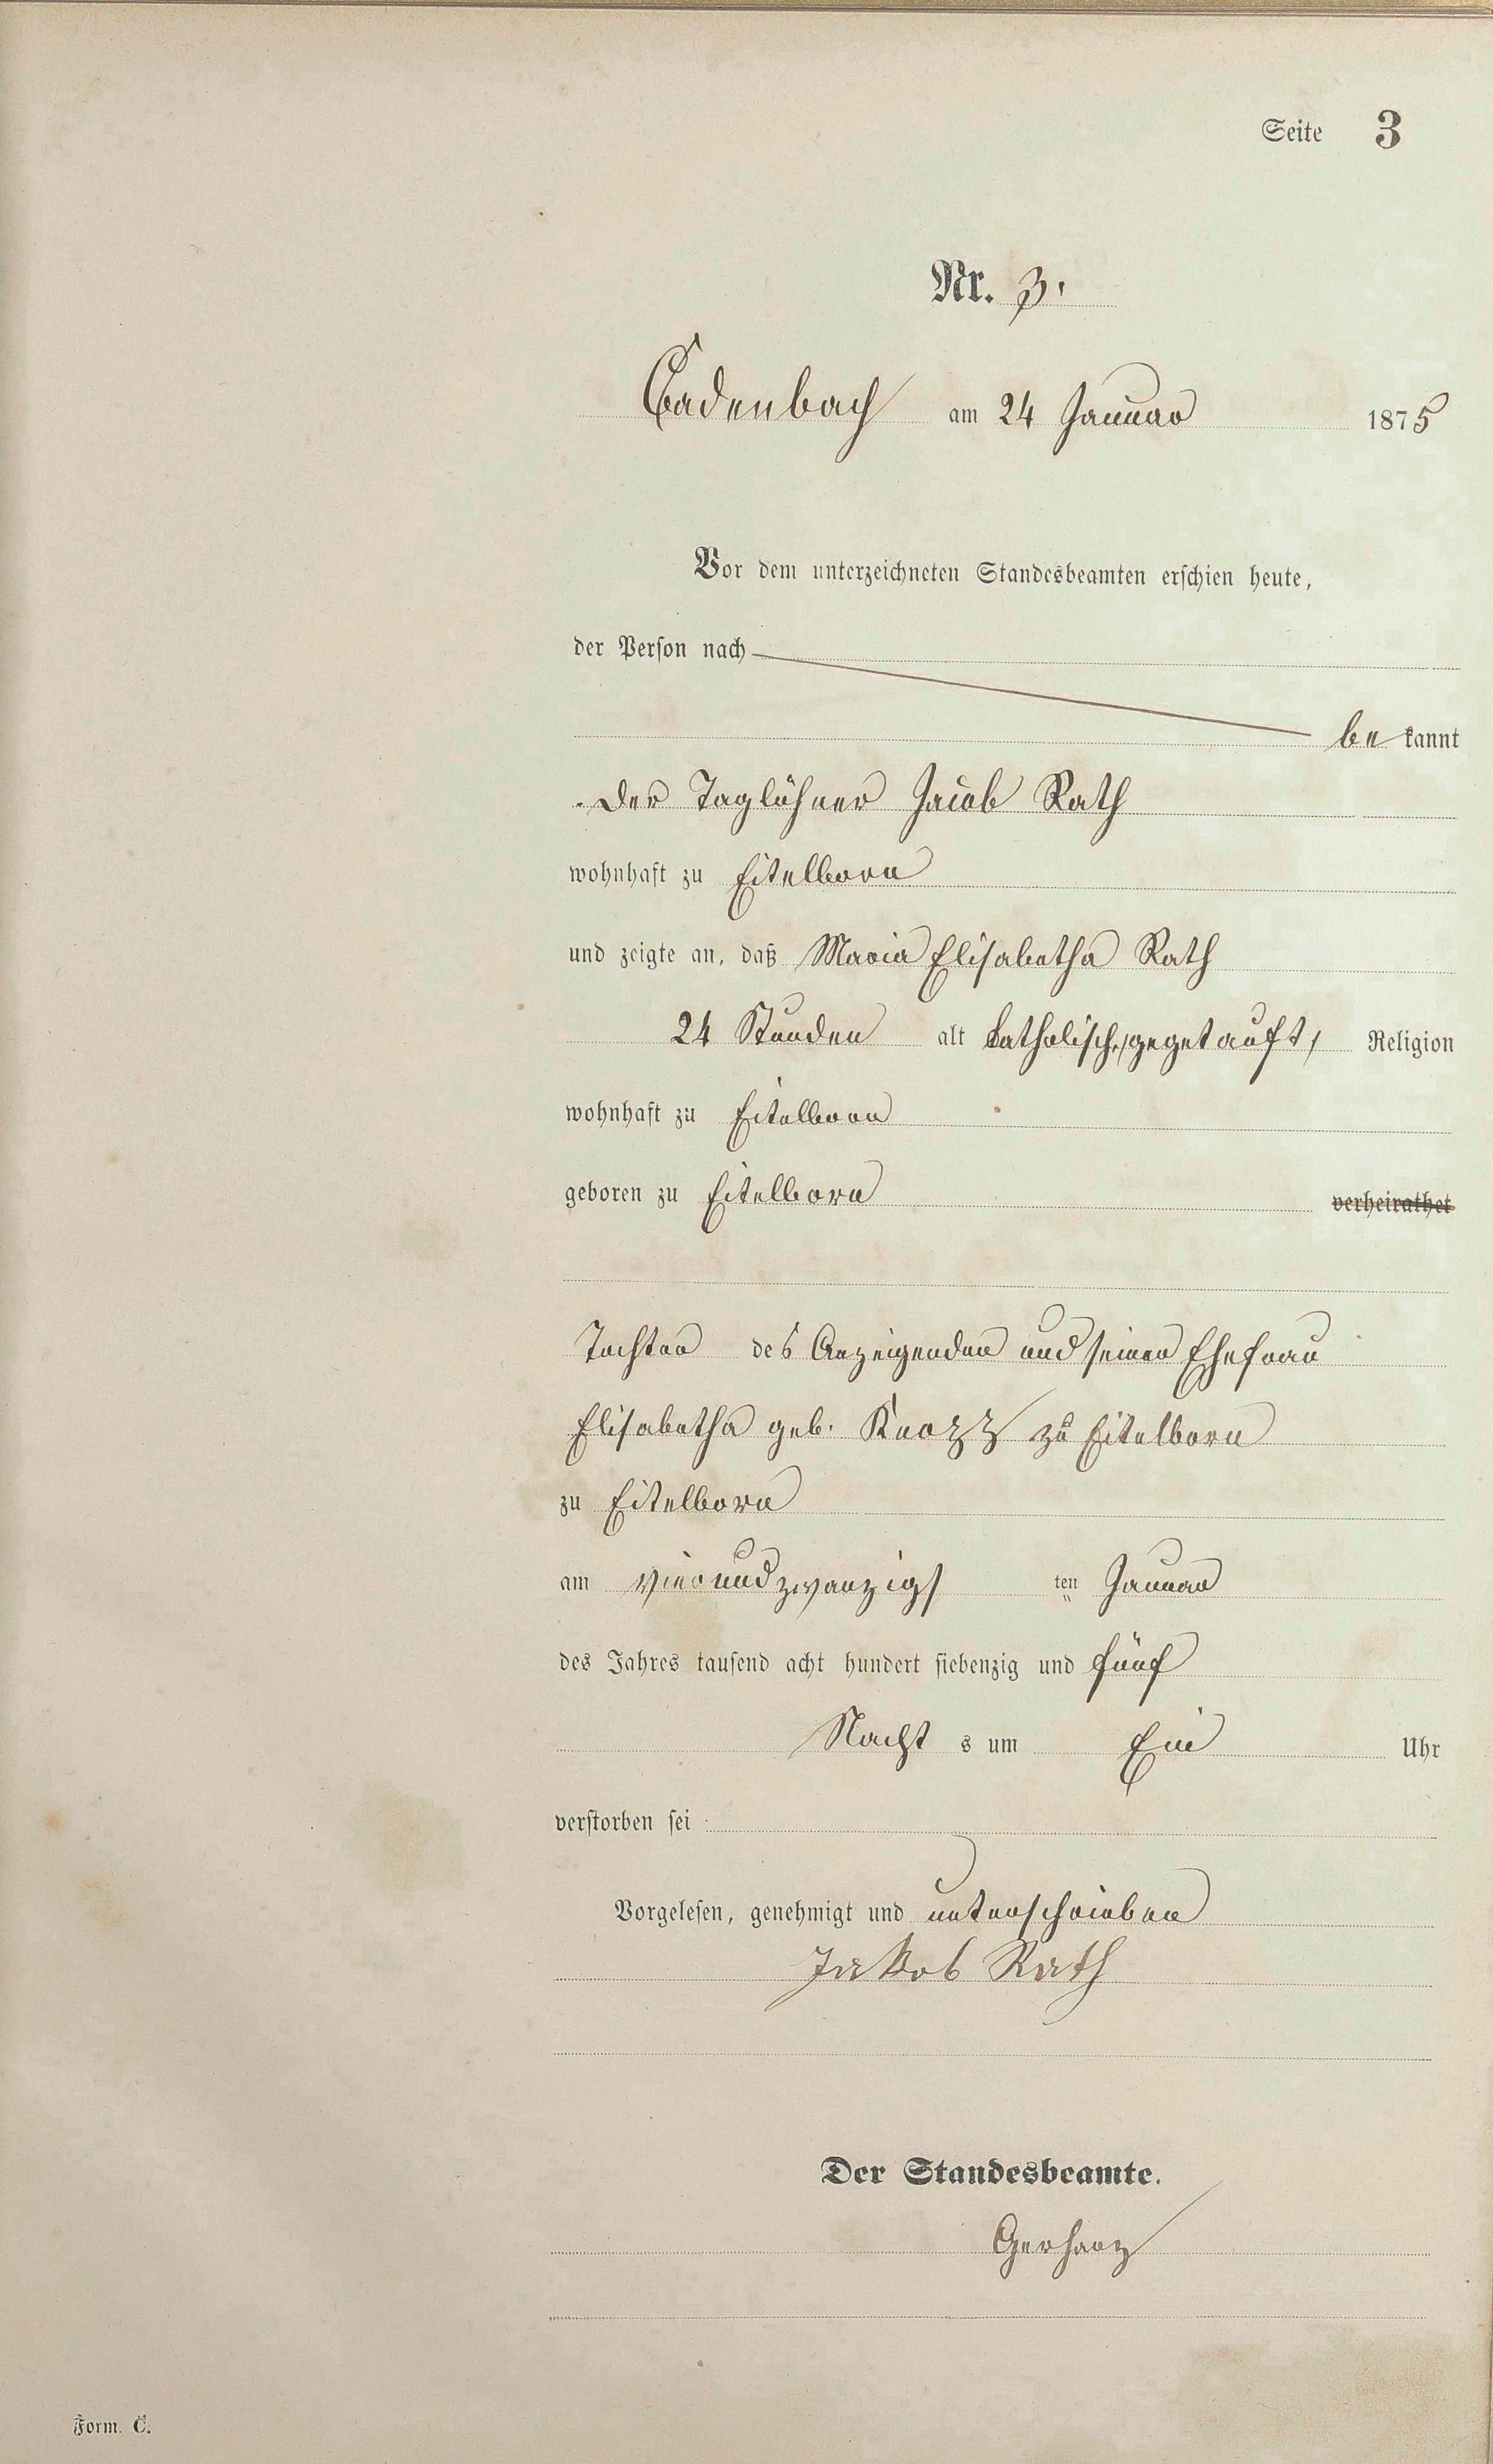 Seite 3
Nr. 3.
Cadenbach am 24 Januar 1875
Vor dem unterzeichneten Standesbeamten erschien heute,
der Person nach
be kannt
der Taglöhner Jacob Rath
wohnhaft zu Eitelborn
und zeigte an, daß Maria Elisabetha Rath
24 Stunden alt katholisch, /gegetauft/ Religion
wohnhaft zu Eitelborn
geboren zu Eitelborn verheirathet
Tochter des Anzeigenden und seiner Ehefrau
Elisabetha geb. zu Eitelborn
zu Eitelborn
am vierundzwanzigs ten Januar
des Jahres tausend acht hundert siebenzig und fünf
Nacht s um Ein Uhr
verstorben sei
Vorgelesen, genehmigt und unterschrieben
Jakob Rath
Der Standesbeamte.
Gerharz
Form. C.